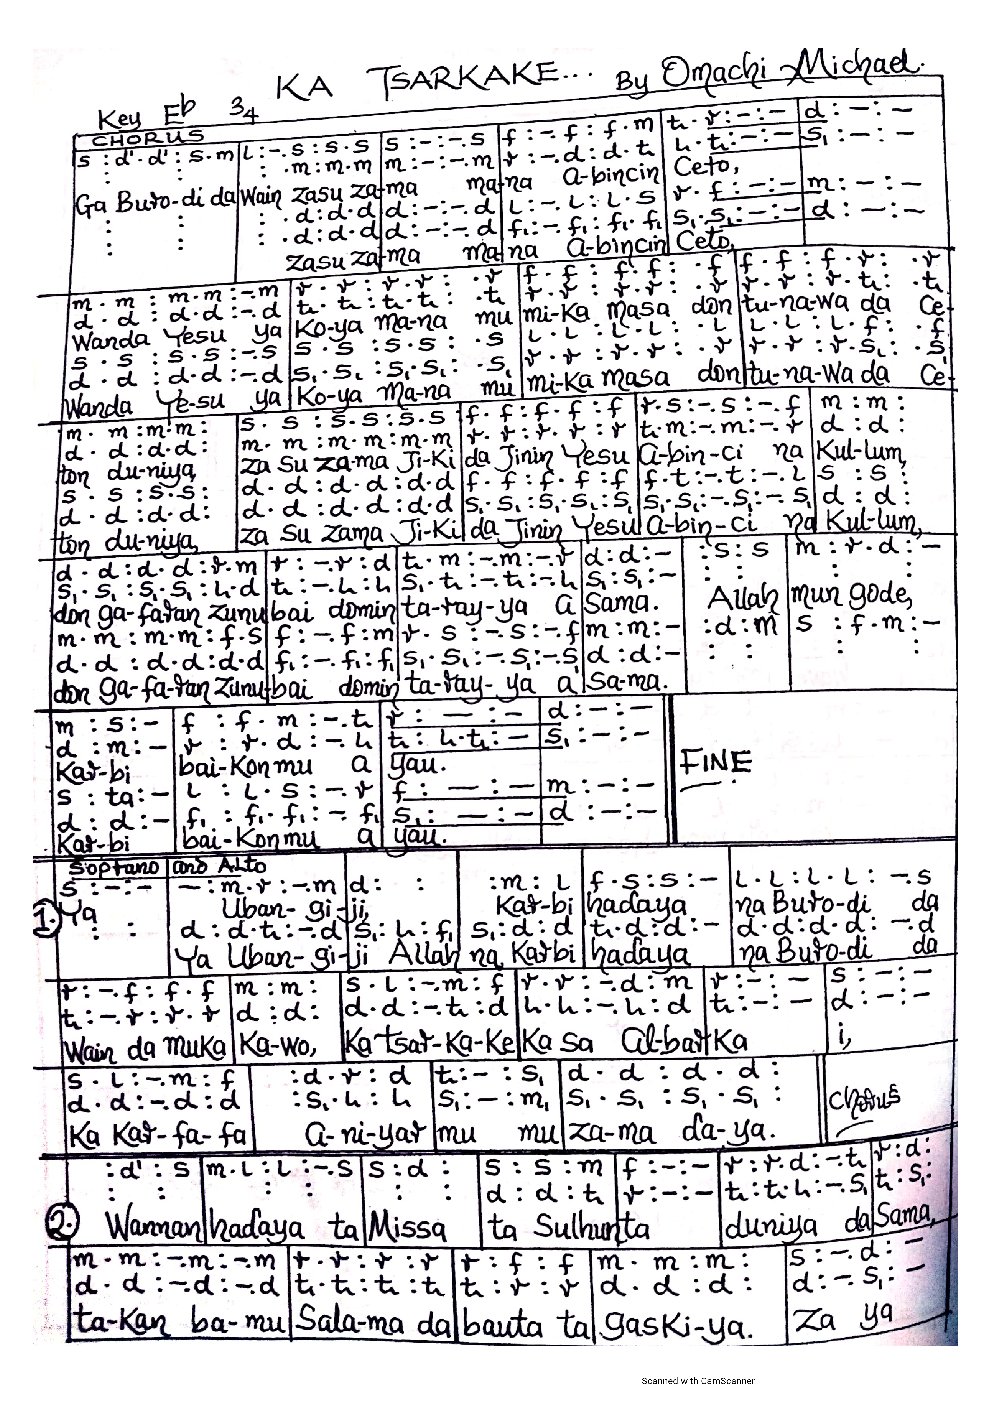 KA TSARKAKE... By Omachi Michael.
Key Eb 3/4
CHORUS
s : d'. d' : s . m | l : - . s : s . s | s : - : - . s | f : - . f : f . m | t₁ . r : - : - | d : - : -
: : | : . m : m . m | m : - : - . m | r : - . d : d . t₁ | l₁ . t₁ : - : - | s₁ : - : -
Ga Buro-di da Wain zasu za-ma ma-na a-bincin Ceto,
: : | : . d : d . d | d : - : - . d | l : - . l : l . s | r . f : - : - | m : - : -
: : | : . d : d . d | d : - : - . d | f₁ : - . f₁ : f₁ . f₁ | s₁ . s₁ : - : - | d : - : -
zasu za-ma ma-na a-bincin Ceto,
m . m : m . m : - . m | r . r : r . r : . r | f . f : f . f : . f | f . f : f . r : . r
d . d : d . d : - . d | t₁ . t₁ : t₁ . t₁ : . t₁ | r . r : r . r : . r | r . r : r . t₁ : . t₁
Wanda Yesu ya Ko-ya ma-na mu mi-ka masa don tu-na-wa da Ce-
s . s : s . s : - . s | s . s : s . s : . s | l . l : l . l : . l | l . l : l . f : . f
d . d : d . d : - . d | s₁ . s₁ : s₁ . s₁ : . s₁ | r . r : r . r : . r | r . r : r . s₁ : . s₁
Wanda Ye-su ya Ko-ya ma-na mu mi-ka masa don tu-na-wa da Ce-
m . m : m . m : | s . s : s . s : s . s | f . f : f . f : f | r . s : - . s : - . f | m : m :
d . d : d . d : | m . m : m . m : m . m | r . r : r . r : r | t₁ . m : - . m : - . r | d : d :
ton du-niya, za su za-ma Ji-Ki da Jinin Yesu a-bin-ci na Kul-lum,
s . s : s . s : | d . d : d . d : d . d | f . f : f . f : f | f . t : - . t : - . l | s : s :
d . d : d . d : | d . d : d . d : d . d | s₁ . s₁ : s₁ . s₁ : s₁ | s₁ . s₁ : - . s₁ : - . s₁ | d : d :
ton du-niya, za su zama Ji-Ki da Jinin Yesu a-bin-ci na Kul-lum,
d . d : d . d : r . m | r : - . r : d | t₁ . m : - . m : - . r | d : d : - | : s : s | m : r . d : -
s₁ . s₁ : s₁ . s₁ : l₁ . d | t₁ : - . l₁ : l₁ | s₁ . t₁ : - . t₁ : - . l₁ | s₁ : s₁ : - | : : | : :
don ga-fa-ran zunu-bai domin ta-ray-ya a Sama. Allah mun gode,
m . m : m . m : f . s | f : - . f : m | r . s : - . s : - . f | m : m : - | : d : m | s : f . m : -
d . d : d . d : d . d | f₁ : - . f₁ : f₁ | s₁ . s₁ : - . s₁ : - . s₁ | d : d : - | : : | : :
don ga-fa-ran zunu-bai domin ta-ray-ya a Sa-ma.
m : s : - | f : f . m : - . t₁ | r : - : - | d : - : -
d : m : - | r : r . d : - . l₁ | t₁ : l₁ . t₁ : - | s₁ : - : -
Kar-bi bai-Kon mu a yau. FINE
s : ta : - | l : l . s : - . r | f : - : - | m : - : -
d : d : - | f₁ : f₁ . f₁ : - . f₁ | s₁ : - : - | d : - : -
Kar-bi bai-Kon mu a yau.
Soprano and Alto
s : - : - | - : m . r : - . m | d : : | : m : l | f . s : s : - | l . l : l . l : - . s
1. Ya Uban-gi-ji, Kar-bi hadaya na Buro-di da
: : | d : d . t₁ : - . d | s₁ : l₁ : f₁ | s₁ : d : d | t₁ . d : d : - | d . d : d . d : - . d
Ya Uban-gi-ji Allah na Karbi hadaya na Buro-di da
r : - . f : f . f | m : m : | s . l : - . m : f | r . r : - . d : m | r : - : - | s : - : -
t₁ : - . r : r . r | d : d : | d . d : - . t₁ : d | l₁ . l₁ : - . l₁ : d | t₁ : - : - | d : - : -
Wain da muka Ka-wo, Ka tsar-Ka-Ke Ka sa al-bar-Ka i,
s . l : - . m : f | : d . r : d | t₁ : - : s₁ | d . d : d . d :
d . d : - . d : d | : s₁ . l₁ : l₁ | s₁ : - : m₁ | s₁ . s₁ : s₁ . s₁ : | Chorus
Ka Kar-fa-fa a-ni-yar mu mu za-ma da-ya.
: d' : s | m . l : l : - . s | s : d : | s : s : m | f : - : - | r : r . d : - . t₁ | r : d :
: : | : : | : : | d : d : t₁ | r : - : - | t₁ : t₁ . l₁ : - . s₁ | t₁ : s₁ :
2. Wannan hadaya ta Missa ta Sulhunta duniya da Sama,
m . m : - . m : - . m | r . r : r : r | r : f : f | m . m : m : | s : - . d : -
d . d : - . d : - . d | t₁ . t₁ : t₁ : t₁ | t₁ : r : r | d . d : d : | d : - . s₁ : -
ta-Kan ba-mu Sala-ma da bauta ta gasKi-ya. Za ya
Scanned with CamScanner